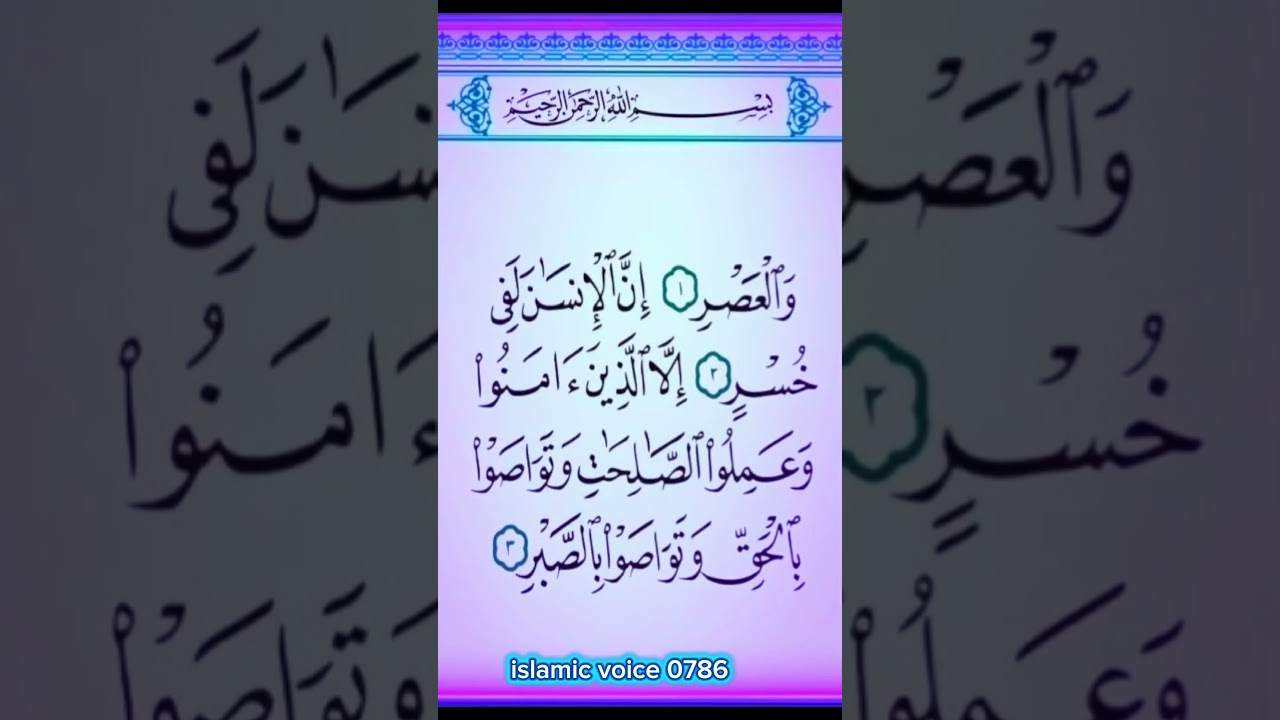 بِسْمِ اللَّهِ الرَّحْمَٰنِ الرَّحِيمِ
وَٱلْعَصْرِ ١ إِنَّ ٱلْإِنسَـٰنَ لَفِى
خُسْرٍ ٢ إِلَّا ٱلَّذِينَ ءَامَنُوا۟
وَعَمِلُوا۟ ٱلصَّـٰلِحَـٰتِ وَتَوَاصَوْا۟
بِٱلْحَقِّ وَتَوَاصَوْا۟ بِٱلصَّبْرِ ٣
islamic voice 0786